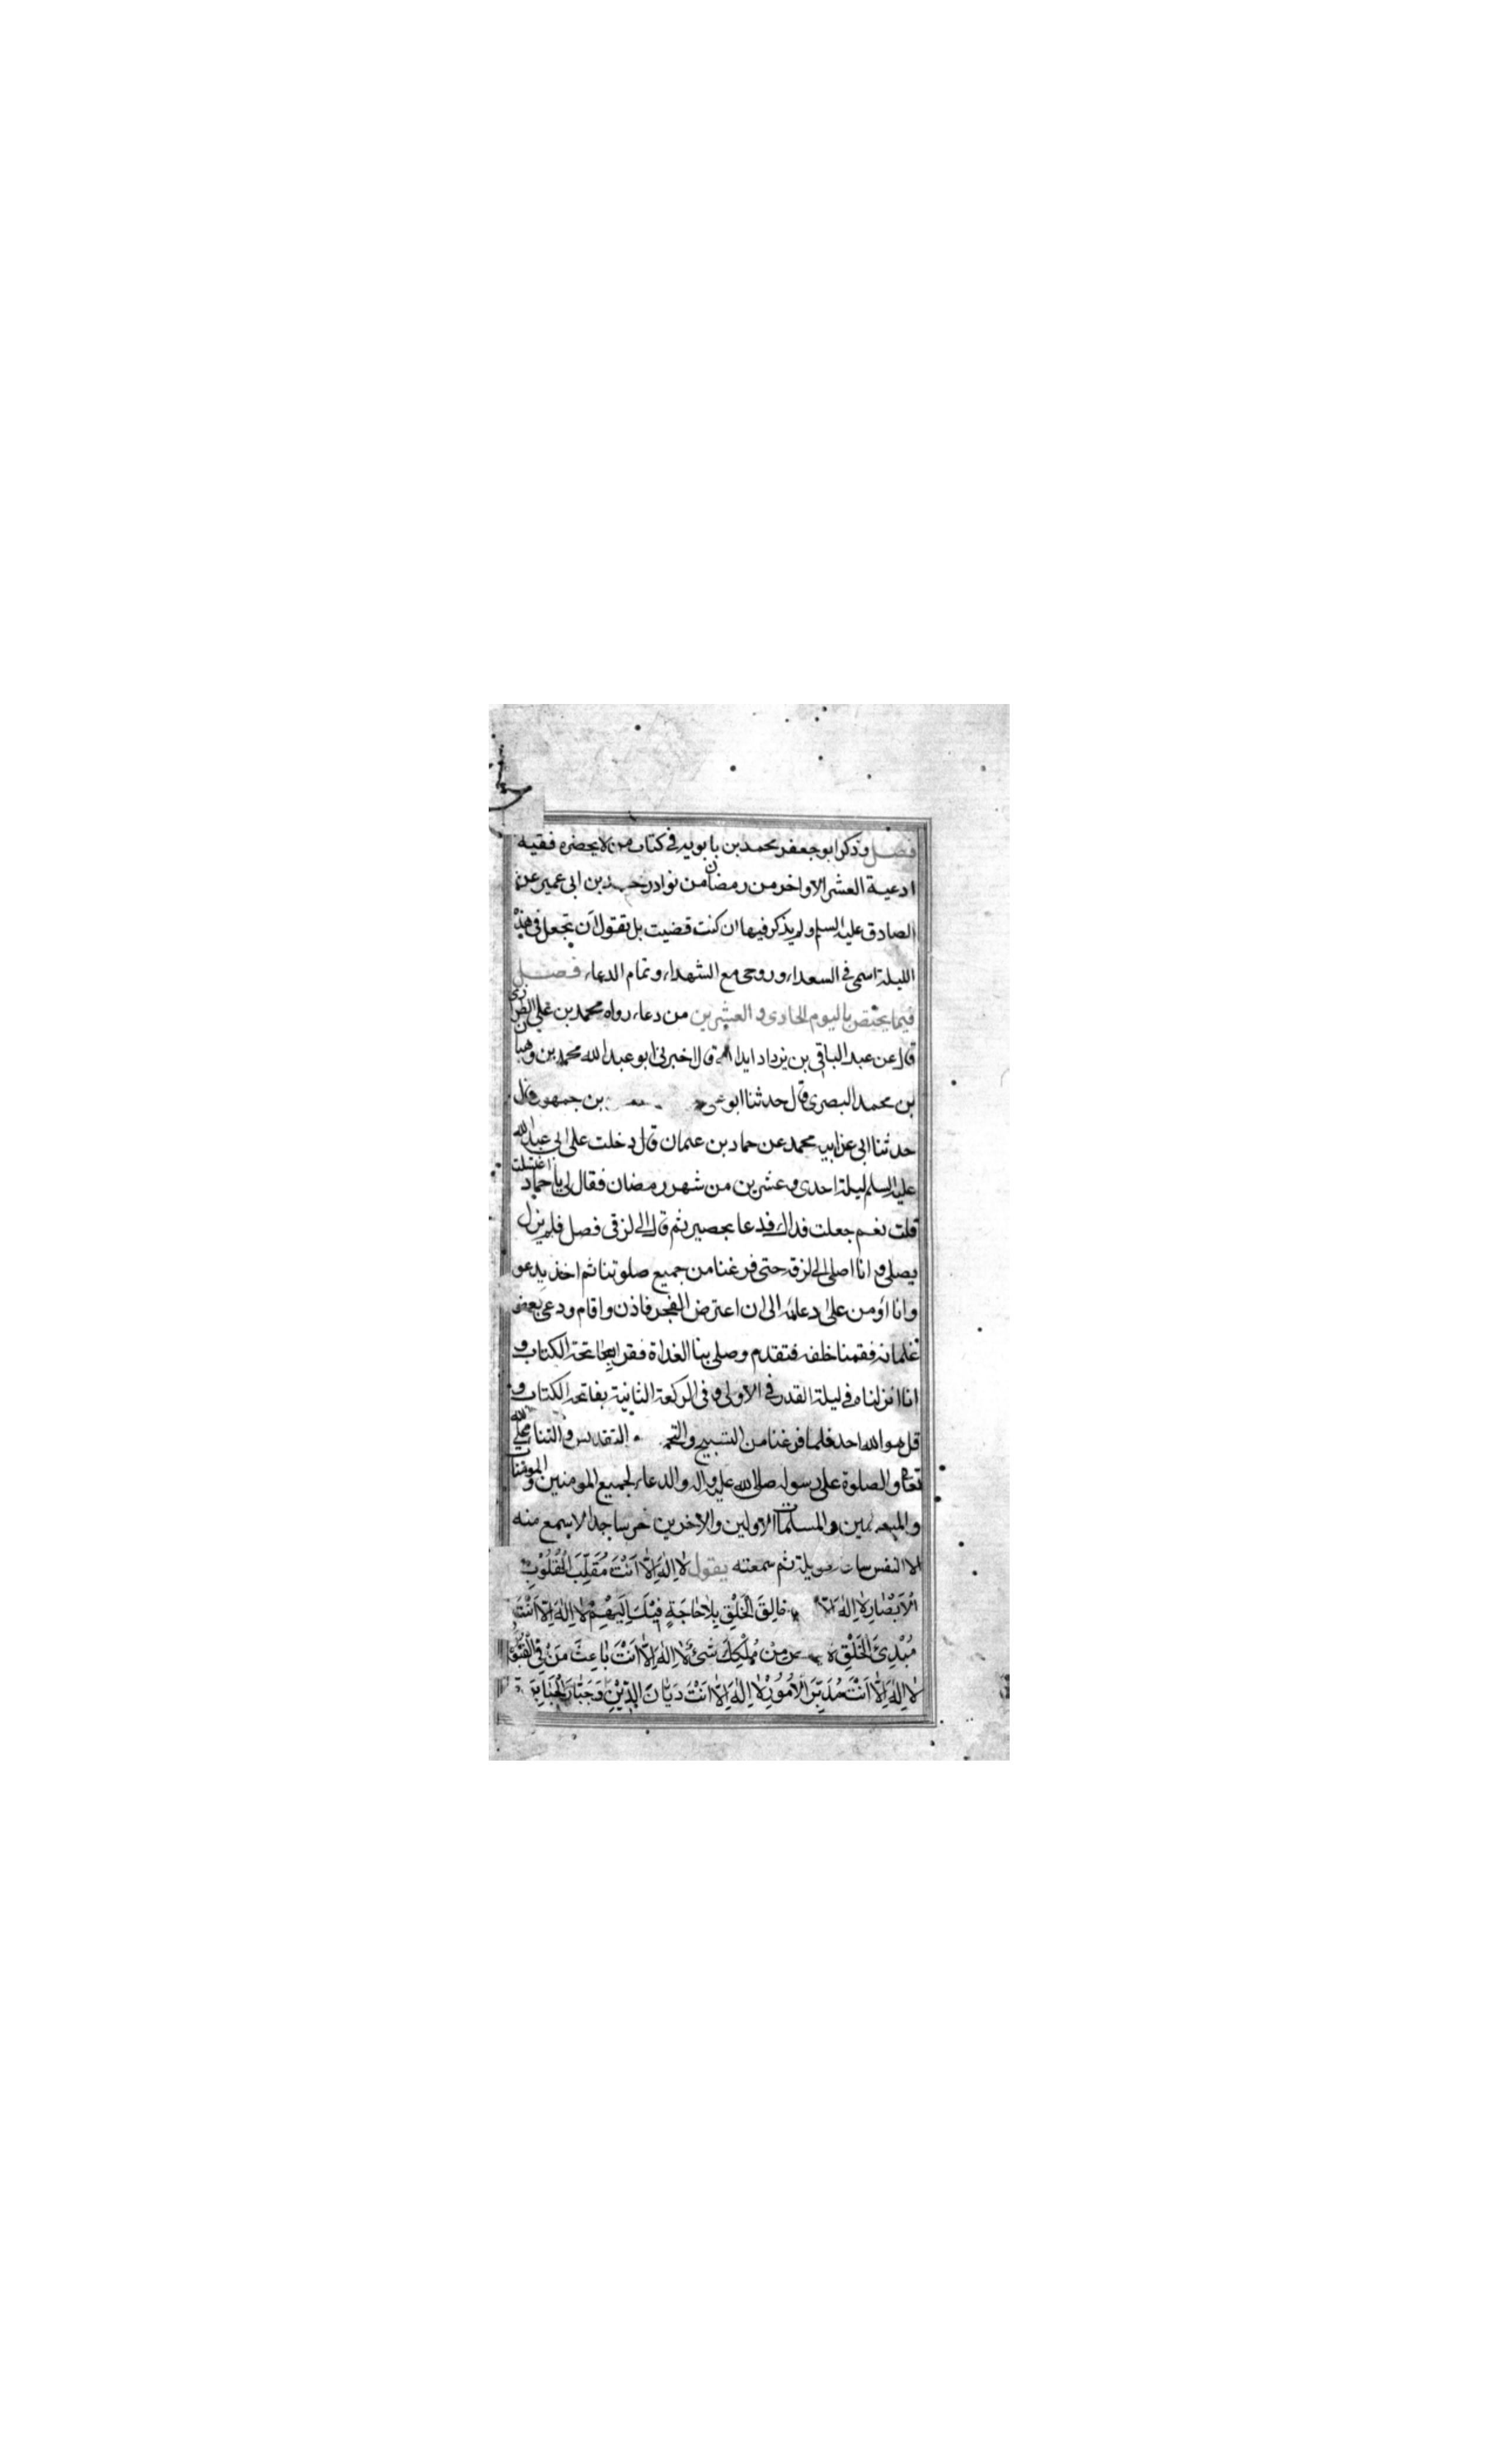 فصل وذكر ابو جعفر محمد بن بابويه في كتاب من لا يحضره فقيه
ادعية العشر الاواخر من رمضان من نوادر بن ابى عمير عن
الصادق عليه السلم ولم يذكر فيها ان كنت قضيت بل تقول ان تجعل في هذه
الليلة اسمى في السعداء وروحى مع الشهداء وتمام الدعاء فصل
فيما يختص باليوم الحادى والعشرين من دعاء رواه محمد بن على الطرازى
قال عن عبد الباقى بن يزداد ايده الله قال اخبرنى ابو عبد الله محمد بن وهبان
بن محمد البصرى قال حدثنا ابو بن جمهور قال
حدثنا ابى عن ابيه محمد عن حماد بن عثمان قال دخلت على ابى عبد الله
عليه السلم ليلة احدى وعشرين من شهر رمضان فقال لى يا حماد اغتسلت
قلت نعم جعلت فداك فدعا بحصير ثم قال الى لزقى فصل فلم يزل
يصلى وانا اصلى الى لزقه حتى فرغنا من جميع صلوتنا ثم اخذ يدعو
وانا اومن على دعائه الى ان اعترض الفجر فاذن واقام ودعى بعض
غلمانه فقمنا خلفه فتقدم وصلى بنا الغداة فقرا بفاتحة الكتاب و
انا انزلناه في ليلة القدر في الاولى وفى الركعة الثانية بفاتحة الكتاب و
قل هو الله احد فلما فرغنا من التسبيح والتحميد التقديس والثناء على الله
تعالى والصلوة على رسوله صلى الله عليه واله والدعاء لجميع المومنين والمومنات
والمسلمين والمسلمات الاولين والاخرين خر ساجدا لا اسمع منه
الا النفس ساعة طويلة ثم سمعته يقول لا اِلٰهَ اِلّا اَنْتَ مُقَلِّبَ الْقُلُوْبِ وَ
الْاَبْصَارِ لا اِلٰهَ اِلّا خَالِقَ الْخَلْقِ بِلا حَاجَةٍ فِيْكَ اِلَيْهِمْ لا اِلٰهَ اِلّا اَنْتَ
مُبْدِئَ الْخَلْقِ مِنْ مُلْكِكَ شَىْءٌ لا اِلٰهَ اِلّا اَنْتَ بَاعِثَ مَنْ فِى الْقُبُوْرِ
لا اِلٰهَ اِلّا اَنْتَ مُدَبِّرَ الْاُمُوْرِ لا اِلٰهَ اِلّا اَنْتَ دَيَّانَ الدِّيْنِ وَجَبَّارَ الْجَبَابِرَةِ